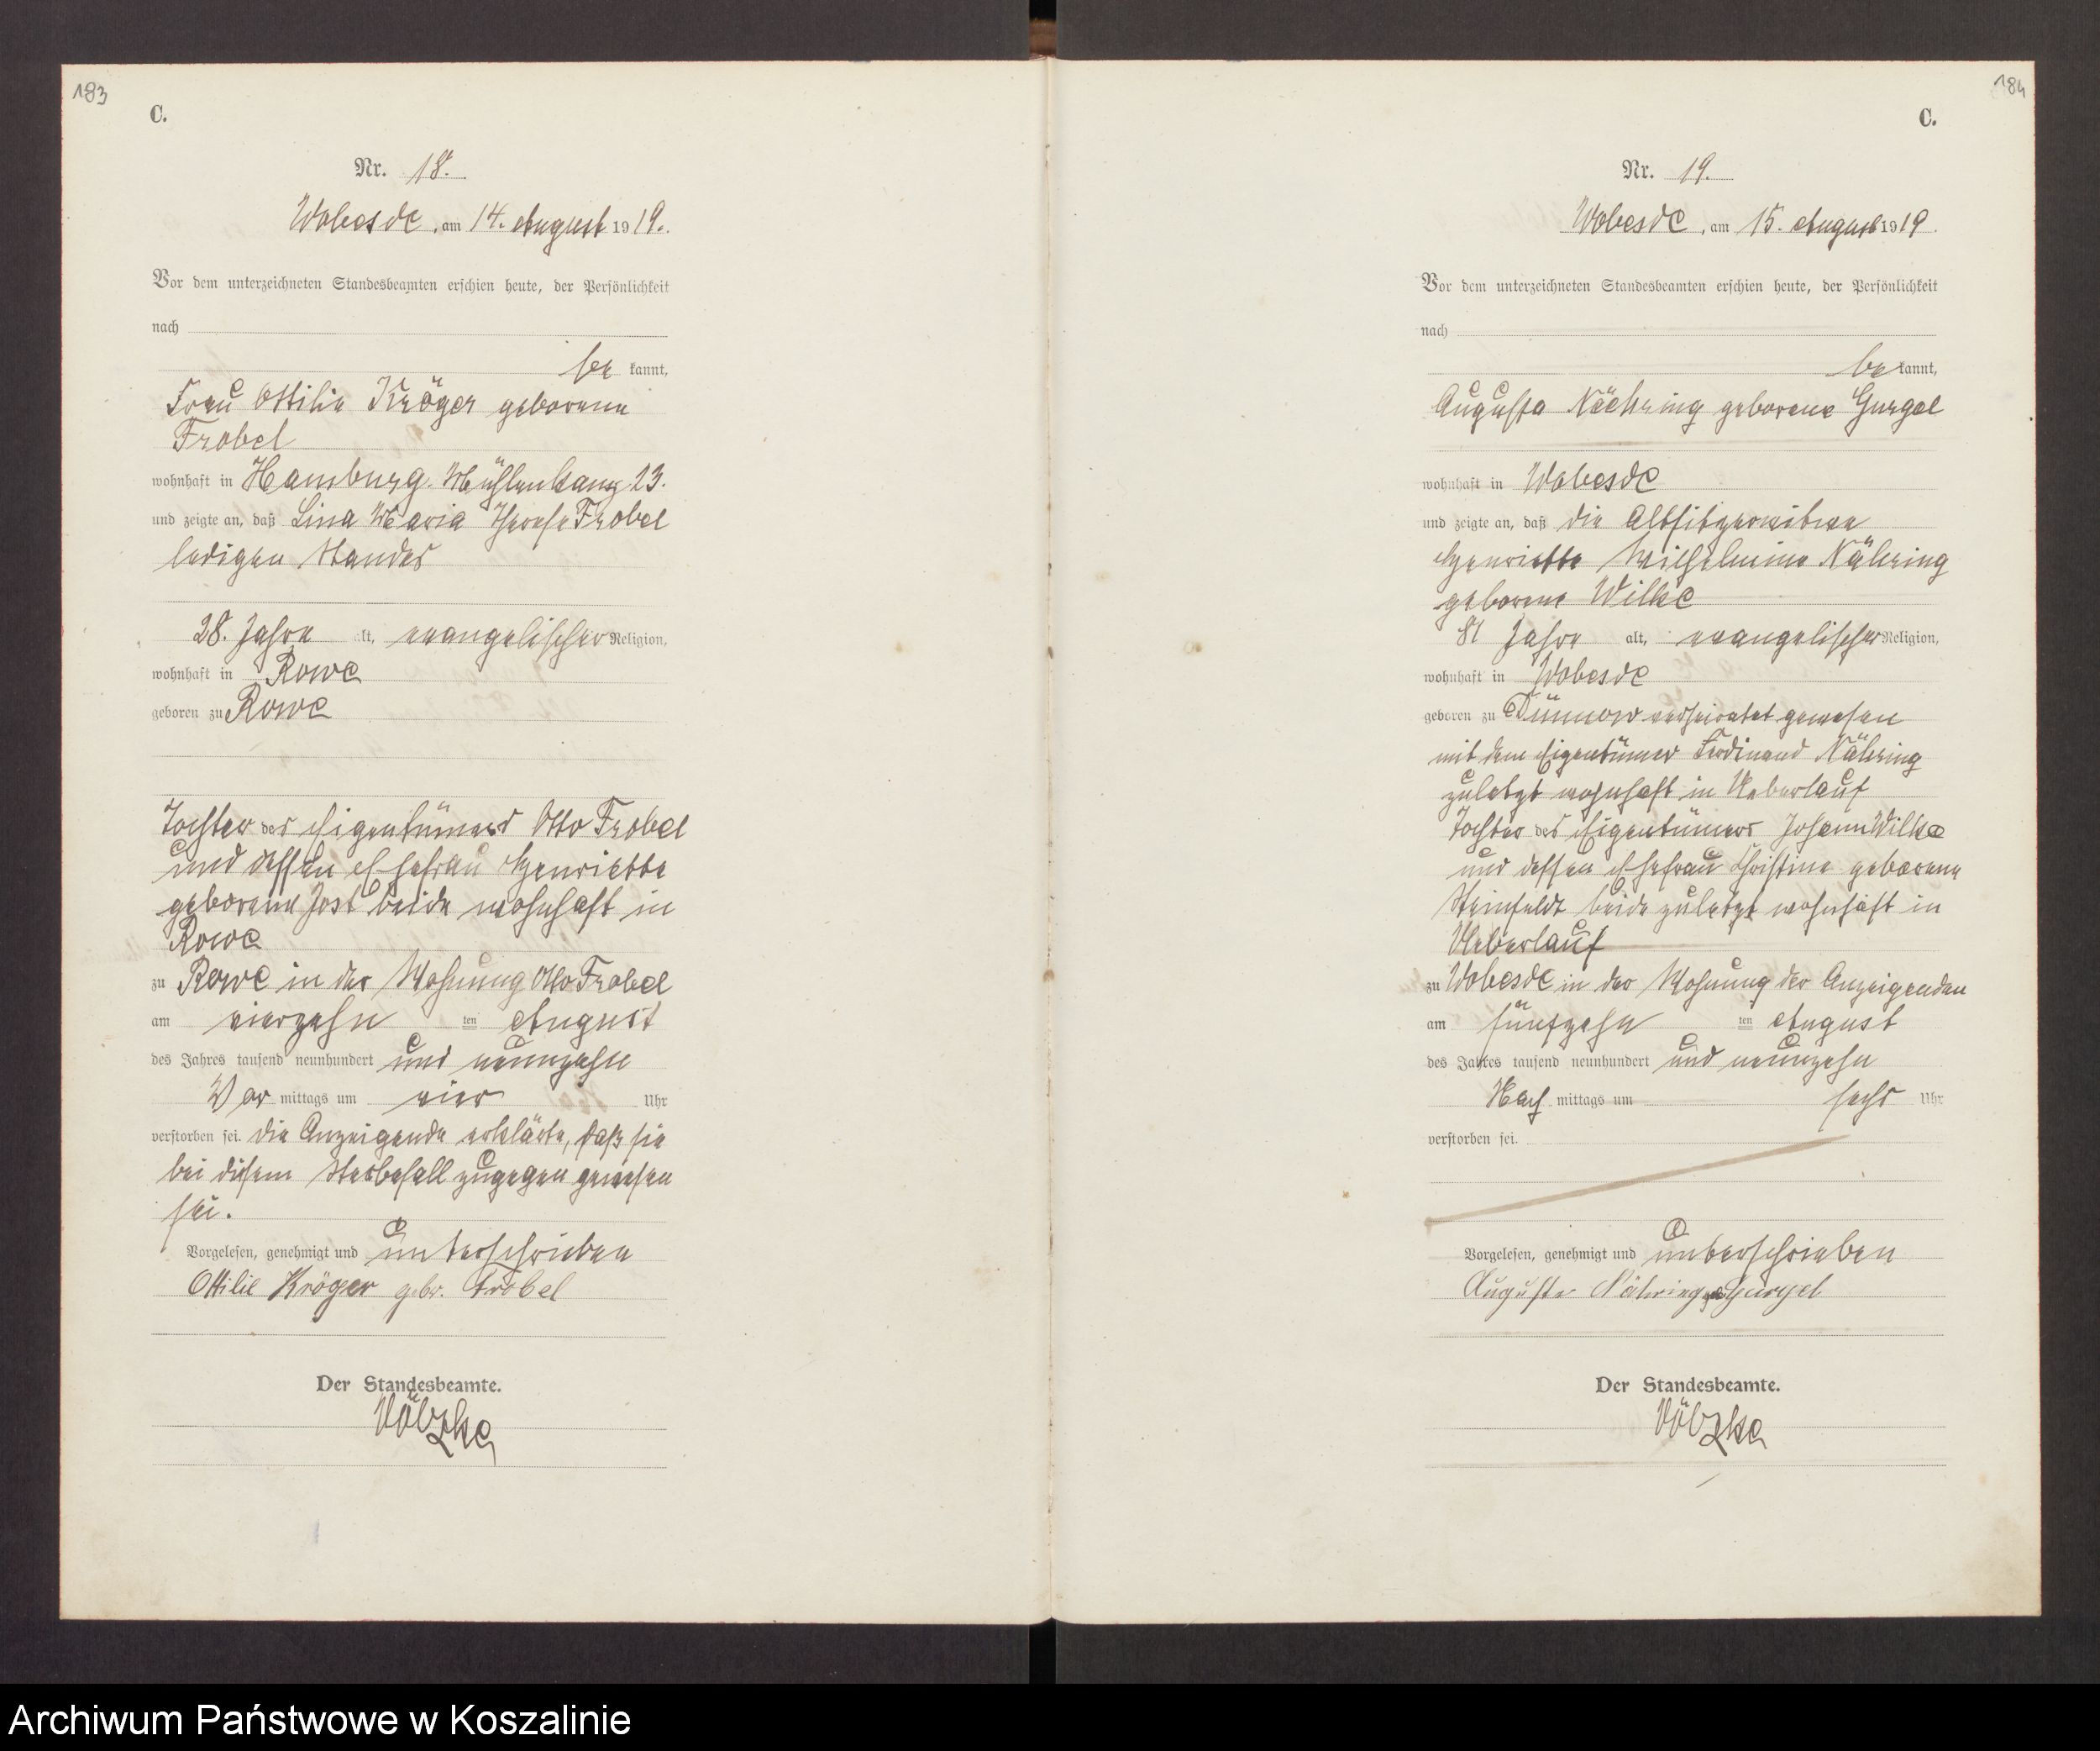 183
C.
Nr. 18.
Wobesde, am 14. August 1919.
Vor dem unterzeichneten Standesbeamten erschien heute, der Persönlichkeit
nach
be kannt,
Frau Ottilie Kröger geborene
Frobel
wohnhaft in Hamburg. Mühlenkamp 23.
und zeigte an, daß Lina Maria Therese Frobel
ledigen Standes
28. Jahre alt, evangelischer Religion,
wohnhaft in Rowe
geboren zu Rowe
Tochter des Eigentümers Otto Frobel
und dessen Ehefrau Henriette
geborene Jost beide wohnhaft in
Rowe
zu Rowe in der Wohnung Otto Frobel
am vierzehn ten August
des Jahres tausend neunhundert und neunzehn
Vor mittags um vier Uhr
verstorben sei. die Anzeigende erklärte, daß sie
bei diesem Sterbefall zugegen gewesen
sei.
Vorgelesen, genehmigt und unterschrieben
Ottilie Kröger gebr. Frobel
Der Standesbeamte.
Völzke
184
C.
Nr. 19.
Wobesde, am 15. August 1919.
Vor dem unterzeichneten Standesbeamten erschien heute, der Persönlichkeit
nach
be kannt,
Auguste Naehring geborene Gurgel
wohnhaft in Wobesde
und zeigte an, daß die Altsitzerwitwe
Henriette Wilhelmine Nähring
geborene Wilke
81 Jahre alt, evangelischer Religion,
wohnhaft in Wobesde
geboren zu Dünnow verheiratet gewesen
mit dem Eigentümer Ferdinand Nähring
zuletzt wohnhaft in Ueberlauf
Tochter des Eigentümers Johann Wilke
und dessen Ehefrau Christine geborene
Steinfeldt beide zuletzt wohnhaft in
Ueberlauf
zu Wobesde in der Wohnung der Anzeigenden
am fünfzehn ten August
des Jahres tausend neunhundert und neunzehn
Nach mittags um sechs Uhr
verstorben sei.
Vorgelesen, genehmigt und unterschrieben
Auguste Nähring Gurgel
Der Standesbeamte.
Völzke
Archiwum Państwowe w Koszalinie